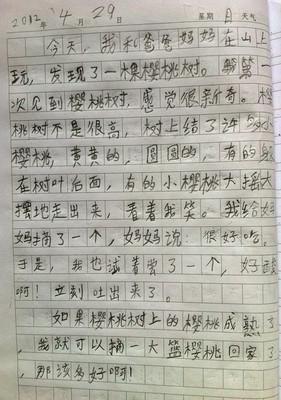 2012年4月29日 星期 日 天气
今天,我和爸爸妈妈在山上
玩,发现了一棵樱桃树。我第
次见到樱桃树,感觉很新奇。樱
桃树不是很高,树上结了许多小
樱桃,黄黄的,圆圆的,有的躲
在树叶后面,有的小樱桃大摇大
摆地走出来,看着我笑。我给妈
妈摘了一个,妈妈说:很好吃。
于是,我也试着尝了一个,好酸
啊!立刻吐出来了。
如果樱桃树上的樱桃成熟了
,我就可以摘一大篮樱桃回家了
,那该多好啊!